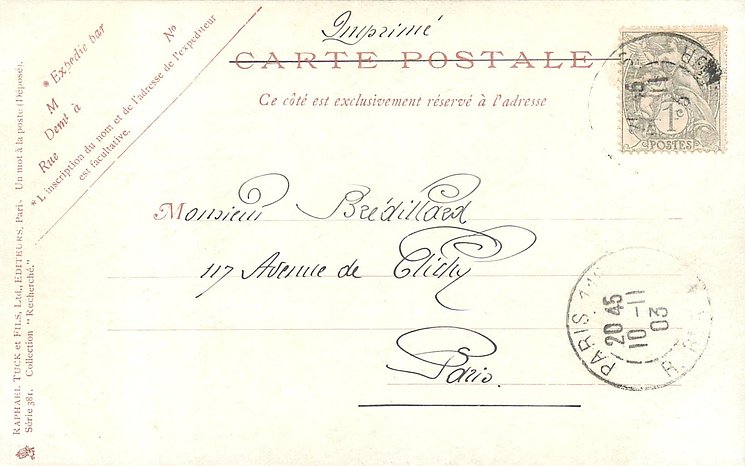 Imprimé
CARTE POSTALE
Ce côté est exclusivement réservé à l'adresse
No
* Expédié par
M
Demt à
Rue
* L'inscription du nom et de l'adresse de l'expéditeur
est facultative.
1c
POSTES
Monsieur Brédillard
117 Avenue de Clichy
Paris.
PARIS
20 45
10 - 11
03
RAPHAEL TUCK et FILS, Ltd., EDITEURS, Paris. Un mot à la poste (Déposé).
Série 381. Collection "Recherché."